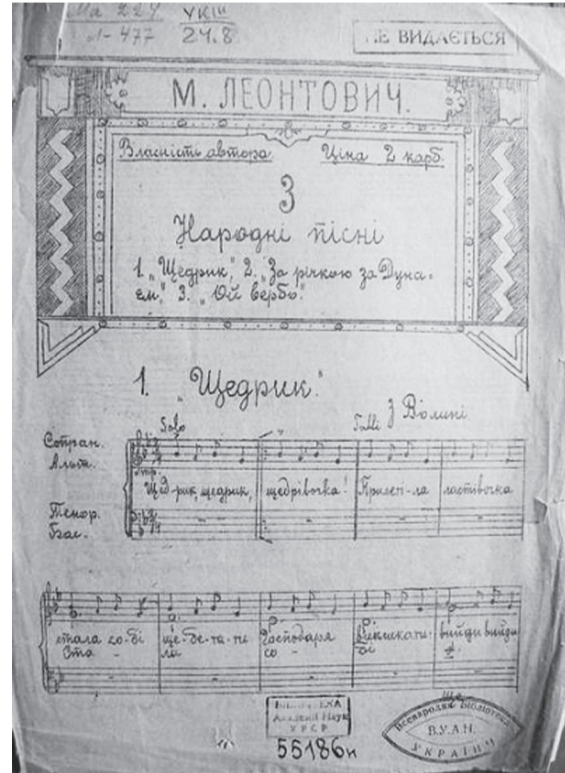 УКІН
А-477 24.8
НЕ ВИДАЄТЬСЯ
М. ЛЕОНТОВИЧ.
Власність автора. Ціна 2 карб.
3
Народні пісні
1. „Щедрик", 2. „За річкою за Дуна-
єм", 3. „Ой вербо".
1. „Щедрик."
З Волині
Solo Tutti
Сопран.
Альт.
Щед-рик, щедрик, щедрівочка! Прилеті-ла ластівочка
Тенор.
Бас.
стала со-бі ще-бе-та-ти Господаря викликати- вийди вийди
Ста - ла со - бі
Ще
АКАДЕМІЇ НАУК
УРСР
55186н
Всенародня Бібліотека
В.У.А.Н.
УКРАЇНИ